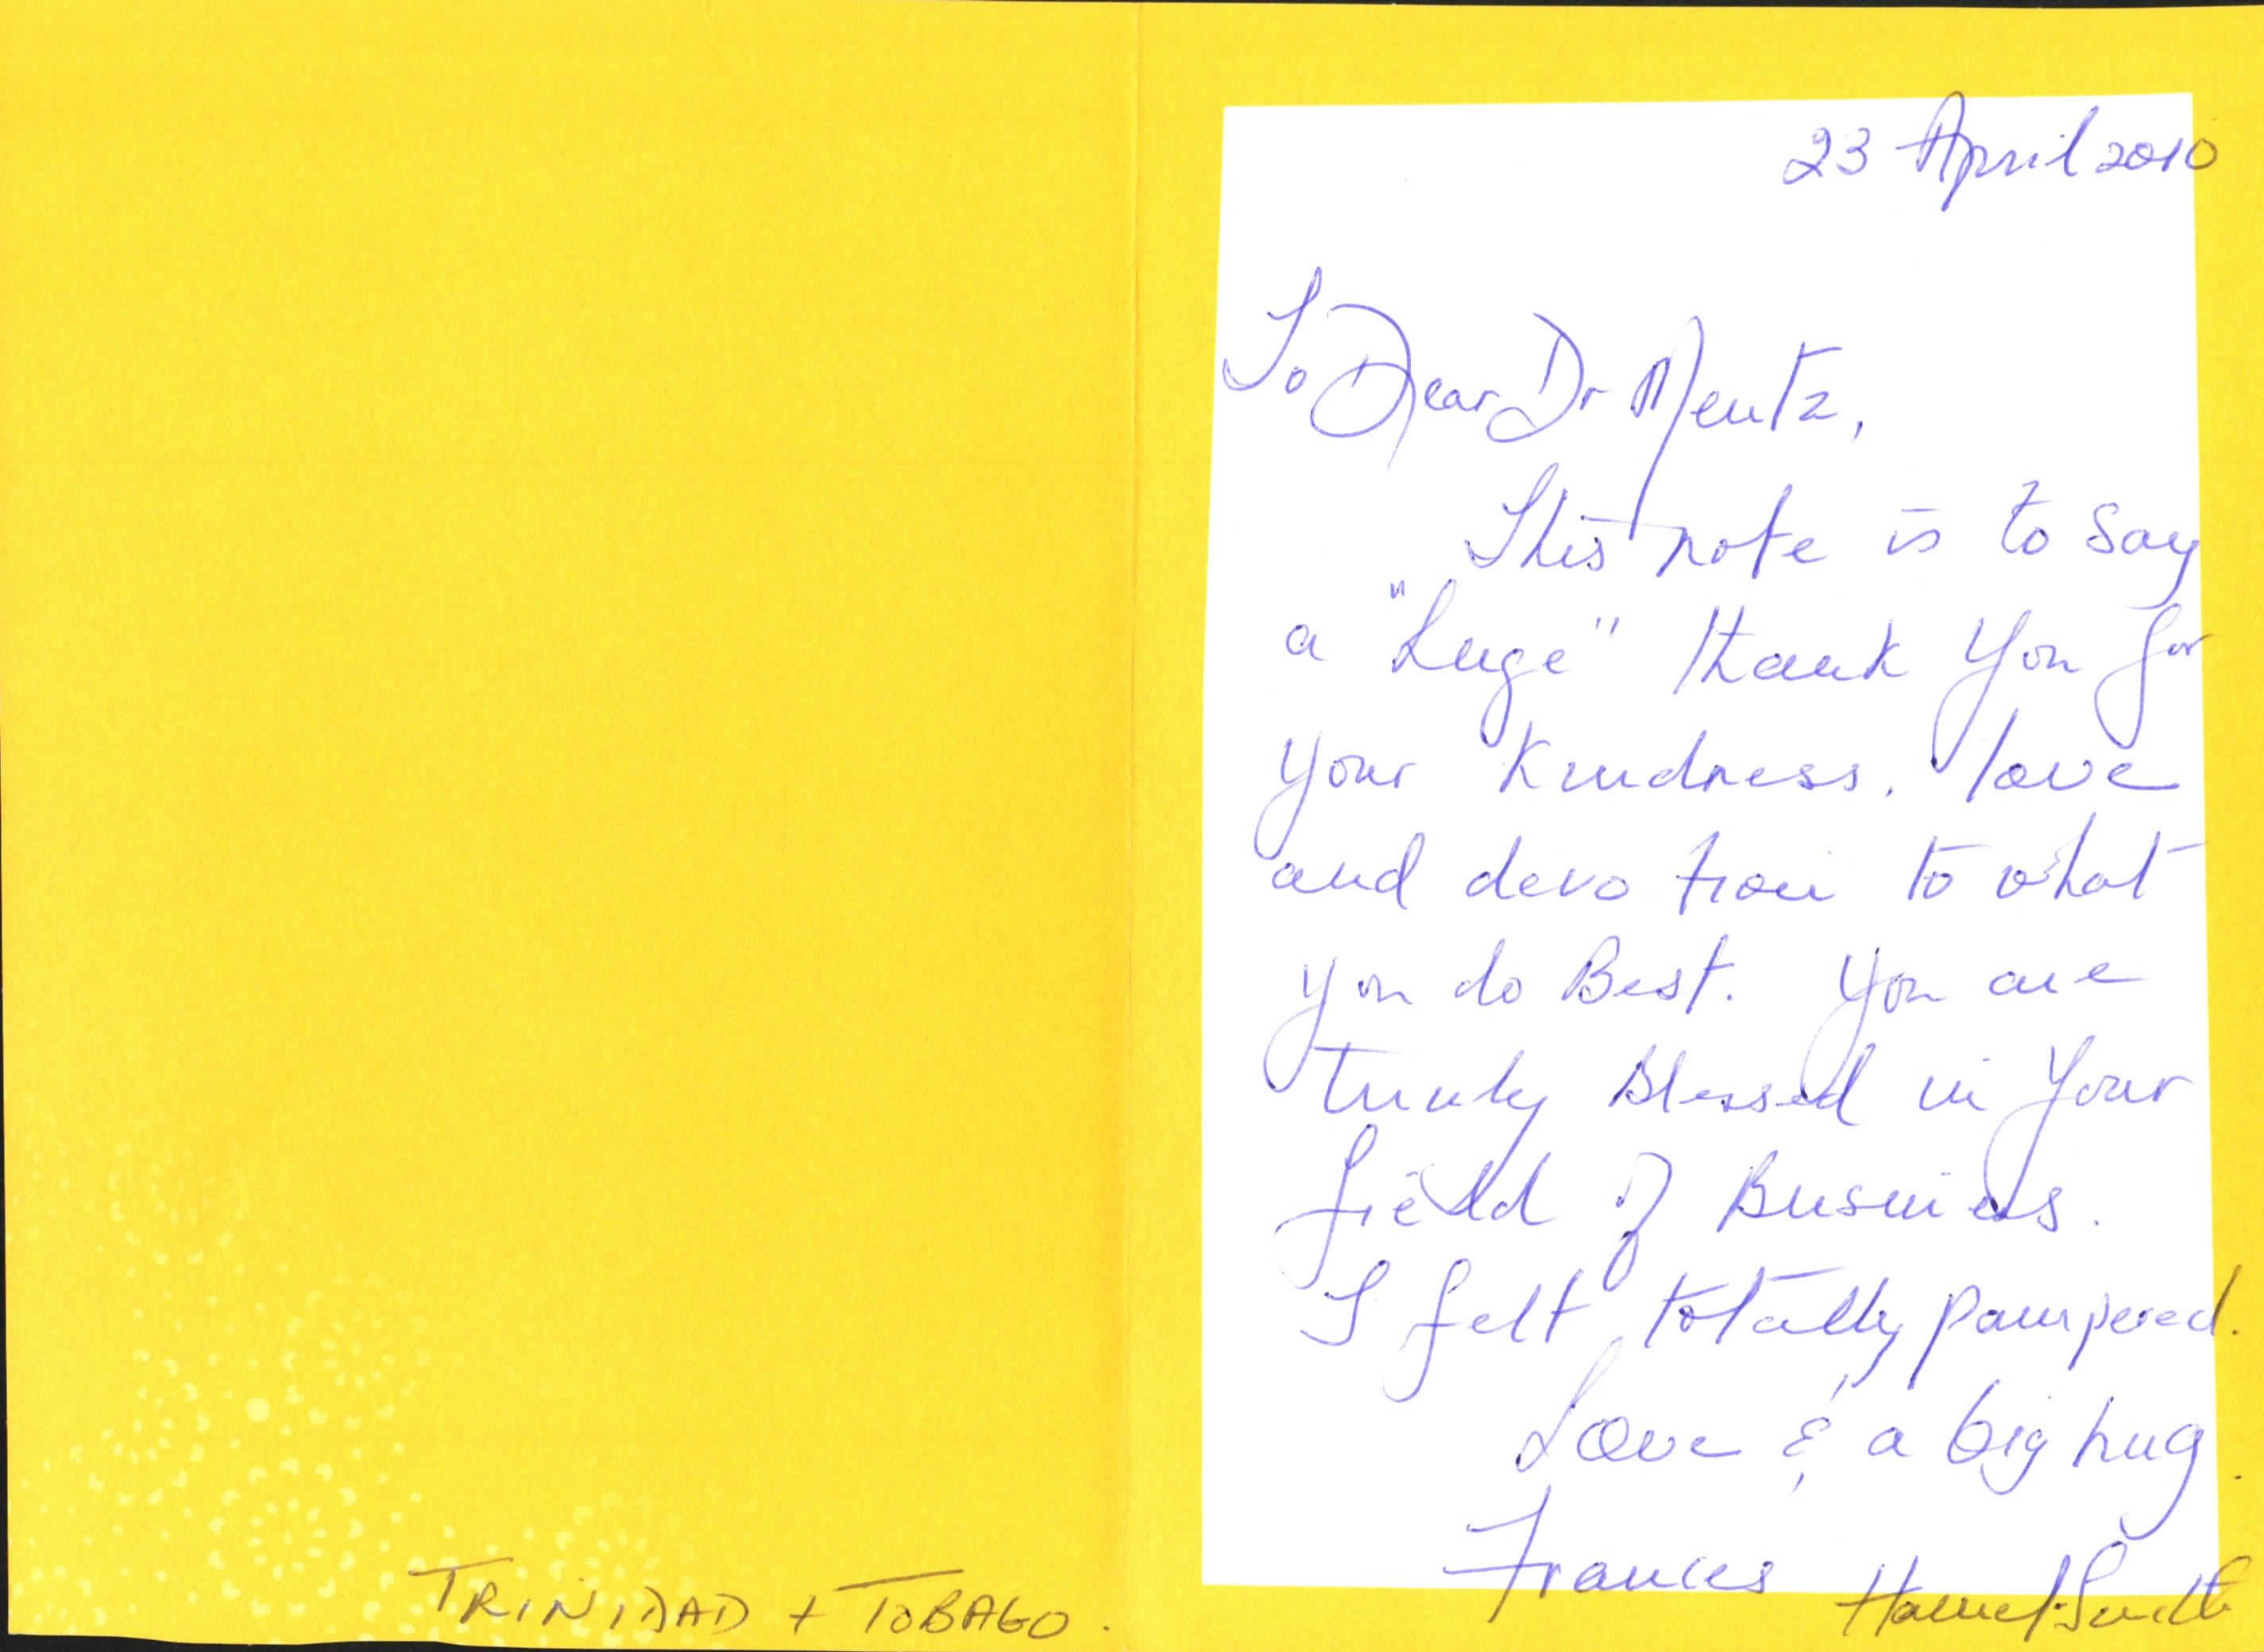 23 April 2010
To Dear Dr Mentz,
This note is to say
a "huge" thank You for
your kindness, love
and devotion to what
you do Best. You are
truly Blessed in Your
field of Business.
I felt totally pampered.
Love & a big hug.
Frances Hamel-Smith
TRINIDAD + TOBAGO.